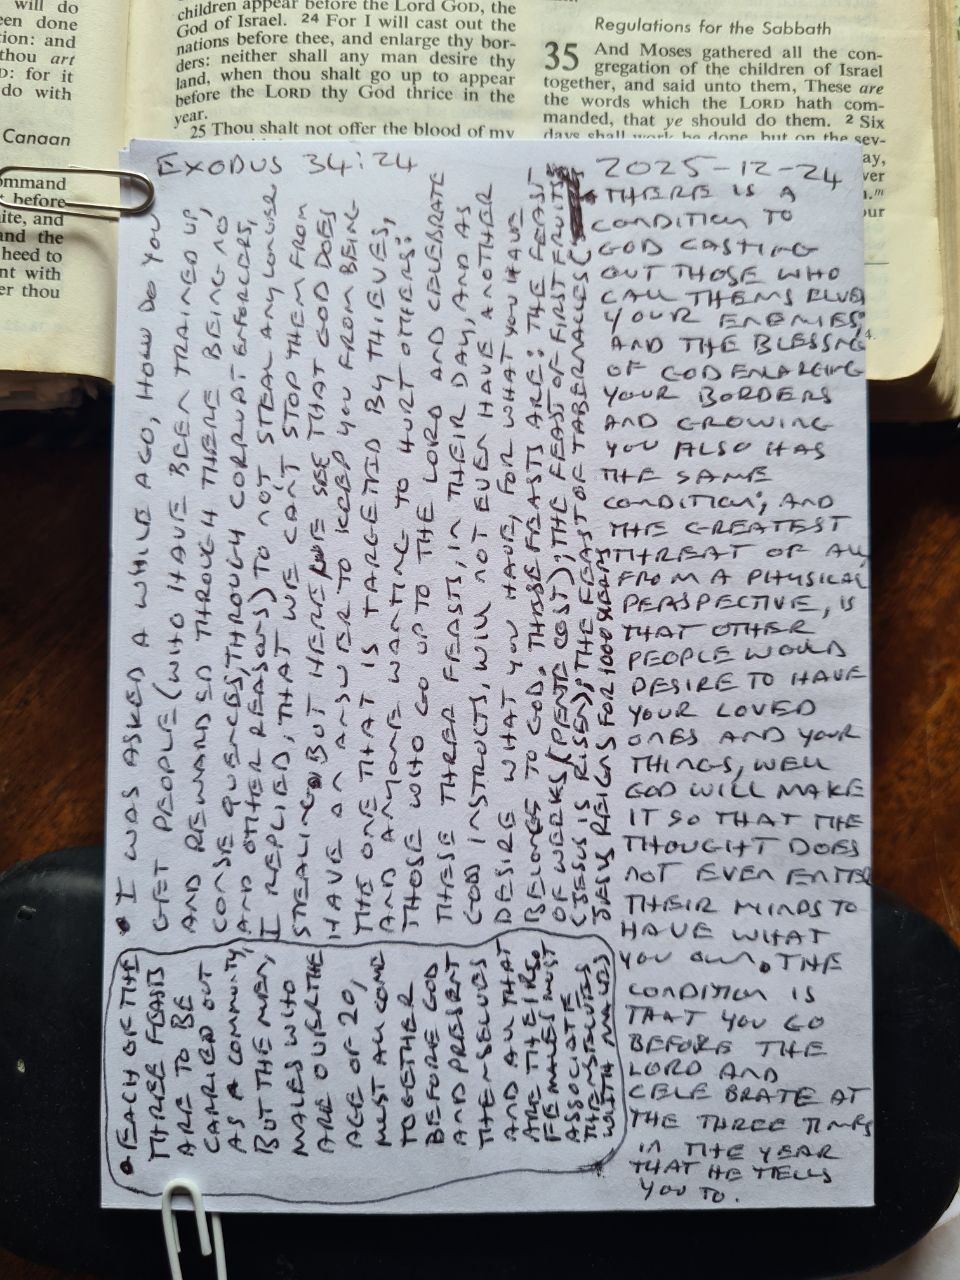 will do
een done
tion: and
thou art
D: for it
do with
Canaan
ommand
t before
ite, and
and the
heed to
nt with
er thou
children appear before the Lord GOD, the
God of Israel. 24 For I will cast out the
nations before thee, and enlarge thy bor-
ders: neither shall any man desire thy
land, when thou shalt go up to appear
before the LORD thy God thrice in the
year.
25 Thou shalt not offer the blood of my
Regulations for the Sabbath
35 And Moses gathered all the con-
gregation of the children of Israel
together, and said unto them, These are
the words which the LORD hath com-
manded, that ye should do them. 2 Six
days shall work be done, but on the sev-
ay,
ver
n.m
our
4.
EXODUS 34:24
2025-12-24
• THERE IS A
CONDITION TO
GOD CASTING
OUT THOSE WHO
CALL THEMSELVES
YOUR ENEMIES;
AND THE BLESSING
OF GOD ENLARGING
YOUR BORDERS
AND GROWING
YOU ALSO HAS
THE SAME
CONDITION; AND
THE GREATEST
THREAT OF ALL
FROM A PHYSICAL
PERSPECTIVE, IS
THAT OTHER
PEOPLE WOULD
DESIRE TO HAVE
YOUR LOVED
ONES AND YOUR
THINGS, WELL
GOD WILL MAKE
IT SO THAT THE
THOUGHT DOES
NOT EVEN ENTER
THEIR MINDS TO
HAVE WHAT
YOU OWN. THE
CONDITION IS
THAT YOU GO
BEFORE THE
LORD AND
CELEBRATE AT
THE THREE TIMES
IN THE YEAR
THAT HE TELLS
YOU TO.
• I WAS ASKED A WHILE AGO, HOW DO YOU
GET PEOPLE (WHO HAVE BEEN TRAINED UP,
AND REWARDED THROUGH THERE BEING NO
CONSEQUENCES, THROUGH CORRUPT ENFORCERS,
AND OTHER REASONS) TO NOT STEAL ANY LONGER
I REPLIED, THAT WE CAN'T STOP THEM FROM
STEALING. BUT HERE WE SEE THAT GOD DOES
HAVE AN ANSWER TO KEEP YOU FROM BEING
THE ONE THAT IS TARGETTED BY THIEVES,
AND ANYONE WANTING TO HURT OTHERS:
THOSE WHO GO UP TO THE LORD AND CELEBRATE
THESE THREE FEASTS, IN THEIR DAY, AND AS
GOD INSTRUCTS, WILL NOT EVEN HAVE ANOTHER
DESIRE WHAT YOU HAVE, FOR WHAT YOU HAVE
BELONGS TO GOD. THESE FEASTS ARE: THE FEAST
OF WEEKS (PENTECOST); THE FEAST OF FIRST FRUITS
(JESUS IS RISEN); THE FEAST OF TABERNACLES (
JESUS REIGNS FOR 1000 YEARS)
• EACH OF THE
THREE FEASTS
ARE TO BE
CARRIED OUT
AS A COMMUNITY,
BUT THE MEN,
MALES WHO
ARE OVER THE
AGE OF 20,
MUST ALL COME
TOGETHER
BEFORE GOD
AND PRESENT
THEMSELVES
AND ALL THAT
ARE THEIRS.
FEMALES MUST
ASSOCIATE
THEMSELVES
WITH MALES